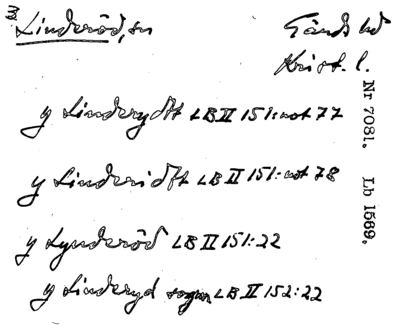 Linderöd, sn
Gärds hd
Krist. l.
y Linderydtt LB II 151: not 77
y Linderidtt LB II 151: not 78
y Lynderöd LB II 151: 22
y Linderyd sogen LB II 152: 22
Nr 7081. Lb 1569.